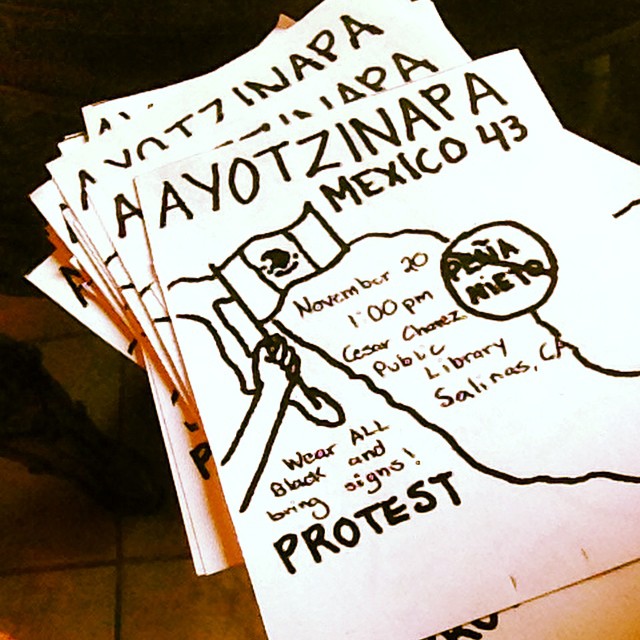 AYOTZINAPA
APA
AYOTZINAPA
MEXICO 43
PEÑA
NIETO
November 20
1:00 pm
Cesar Chavez
Public
Library
Salinas, CA
Wear ALL
Black and
bring signs!
PROTEST